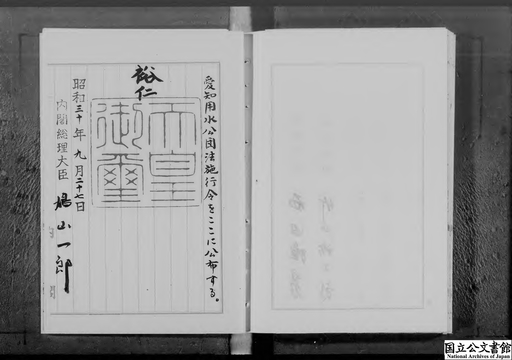 愛知用水公団法施行令をここに公布する。
裕仁
天皇御璽
昭和三十年九月二十七日
内閣総理大臣 鳩山一郎
国立公文書館
National Archives of Japan